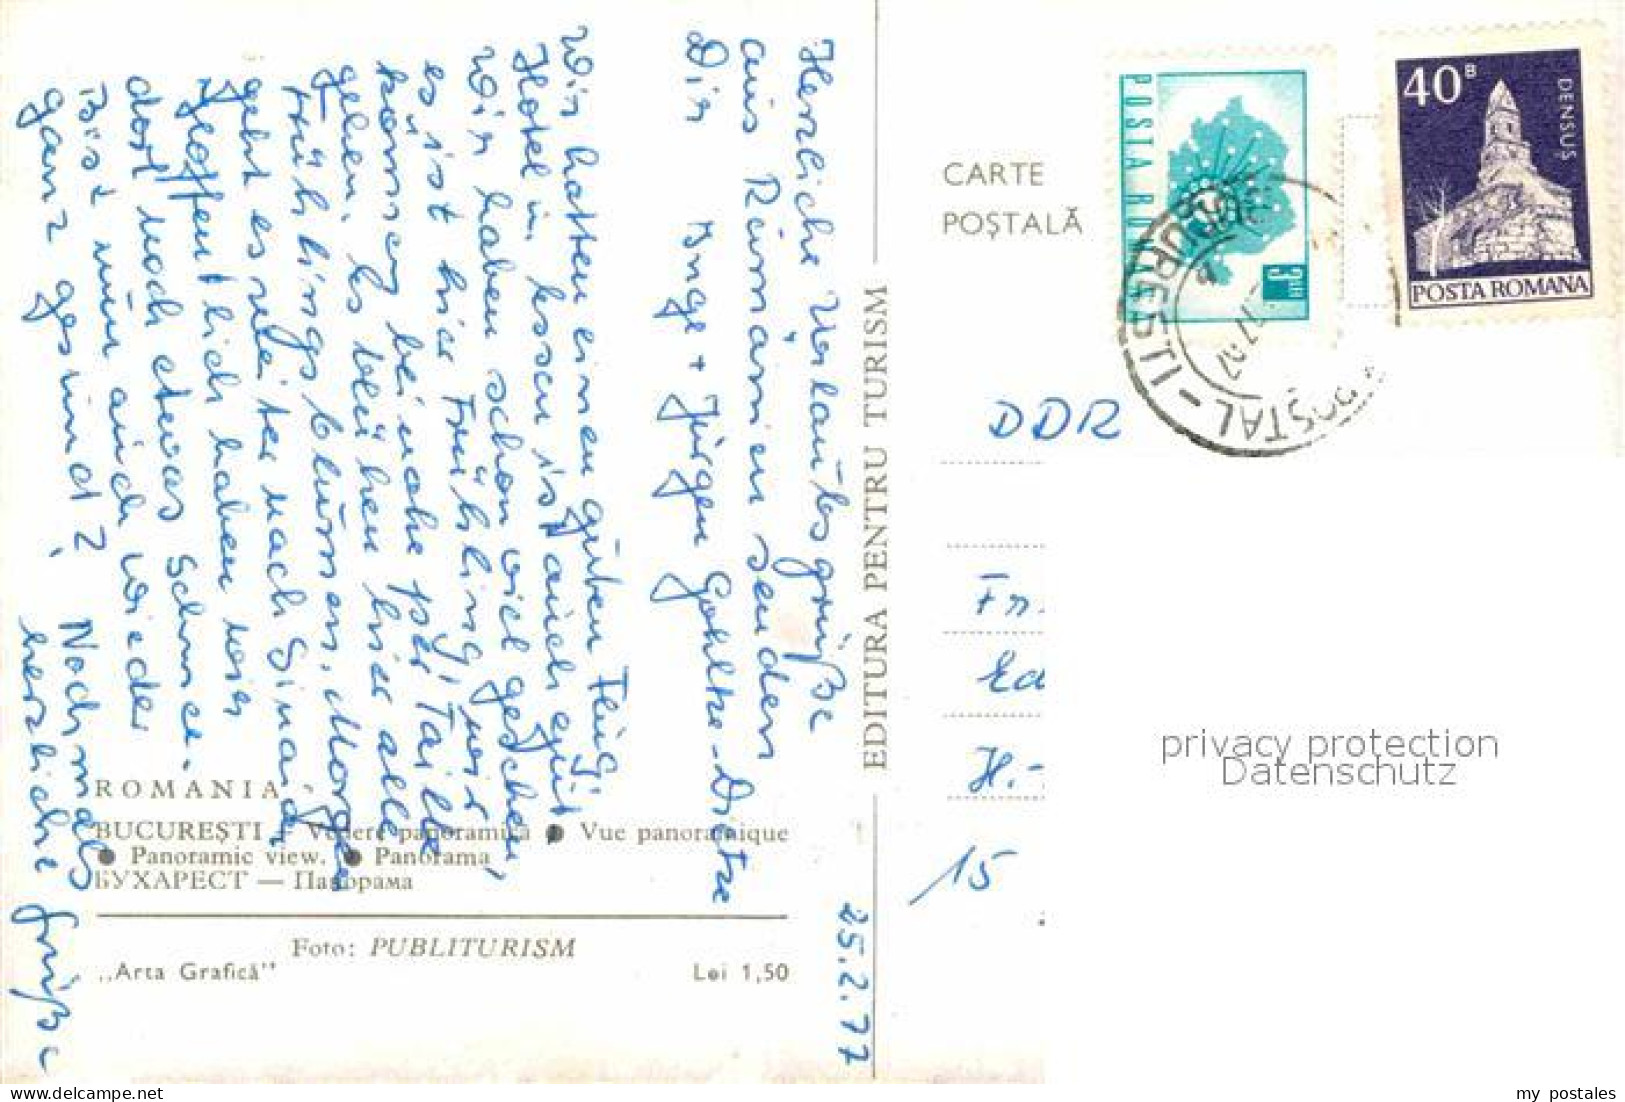 25.2.77
Herzliche Urlaubsgrüße
aus Rumänien senden
Dir Inge + Jürgen
Wir hatten einen guten Flug
Hotel in, Essen ist auch gut
Wir haben schon viel gesehen,
es ist hier Frühling, wir
beinahe per Taille
gehen. Es blühen hier alle
Frühlingsblumen. Morgen
geht es weiter nach Sinaia,
hoffentlich haben wir
dort noch etwas Schnee.
Bist nun auch wieder
ganz gesund? Nochmals
herzliche Grüße
ROMANIA
BUCUREȘTI Vedere panoramică ● Vue panoramique
● Panoramic view. ● Panorama
БУХАРЕСТ — Панорама
Foto: PUBLITURISM
„Arta Grafică” Lei 1,50
EDITURA PENTRU TURISM
CARTE
POȘTALĂ
POSTA ROMANA
3 LEI
40 B
DENSUȘ
POSTA ROMANA
BUCUREȘTI
DDR
Fr.
Ed
H.-
15
privacy protection
Datenschutz
my postales